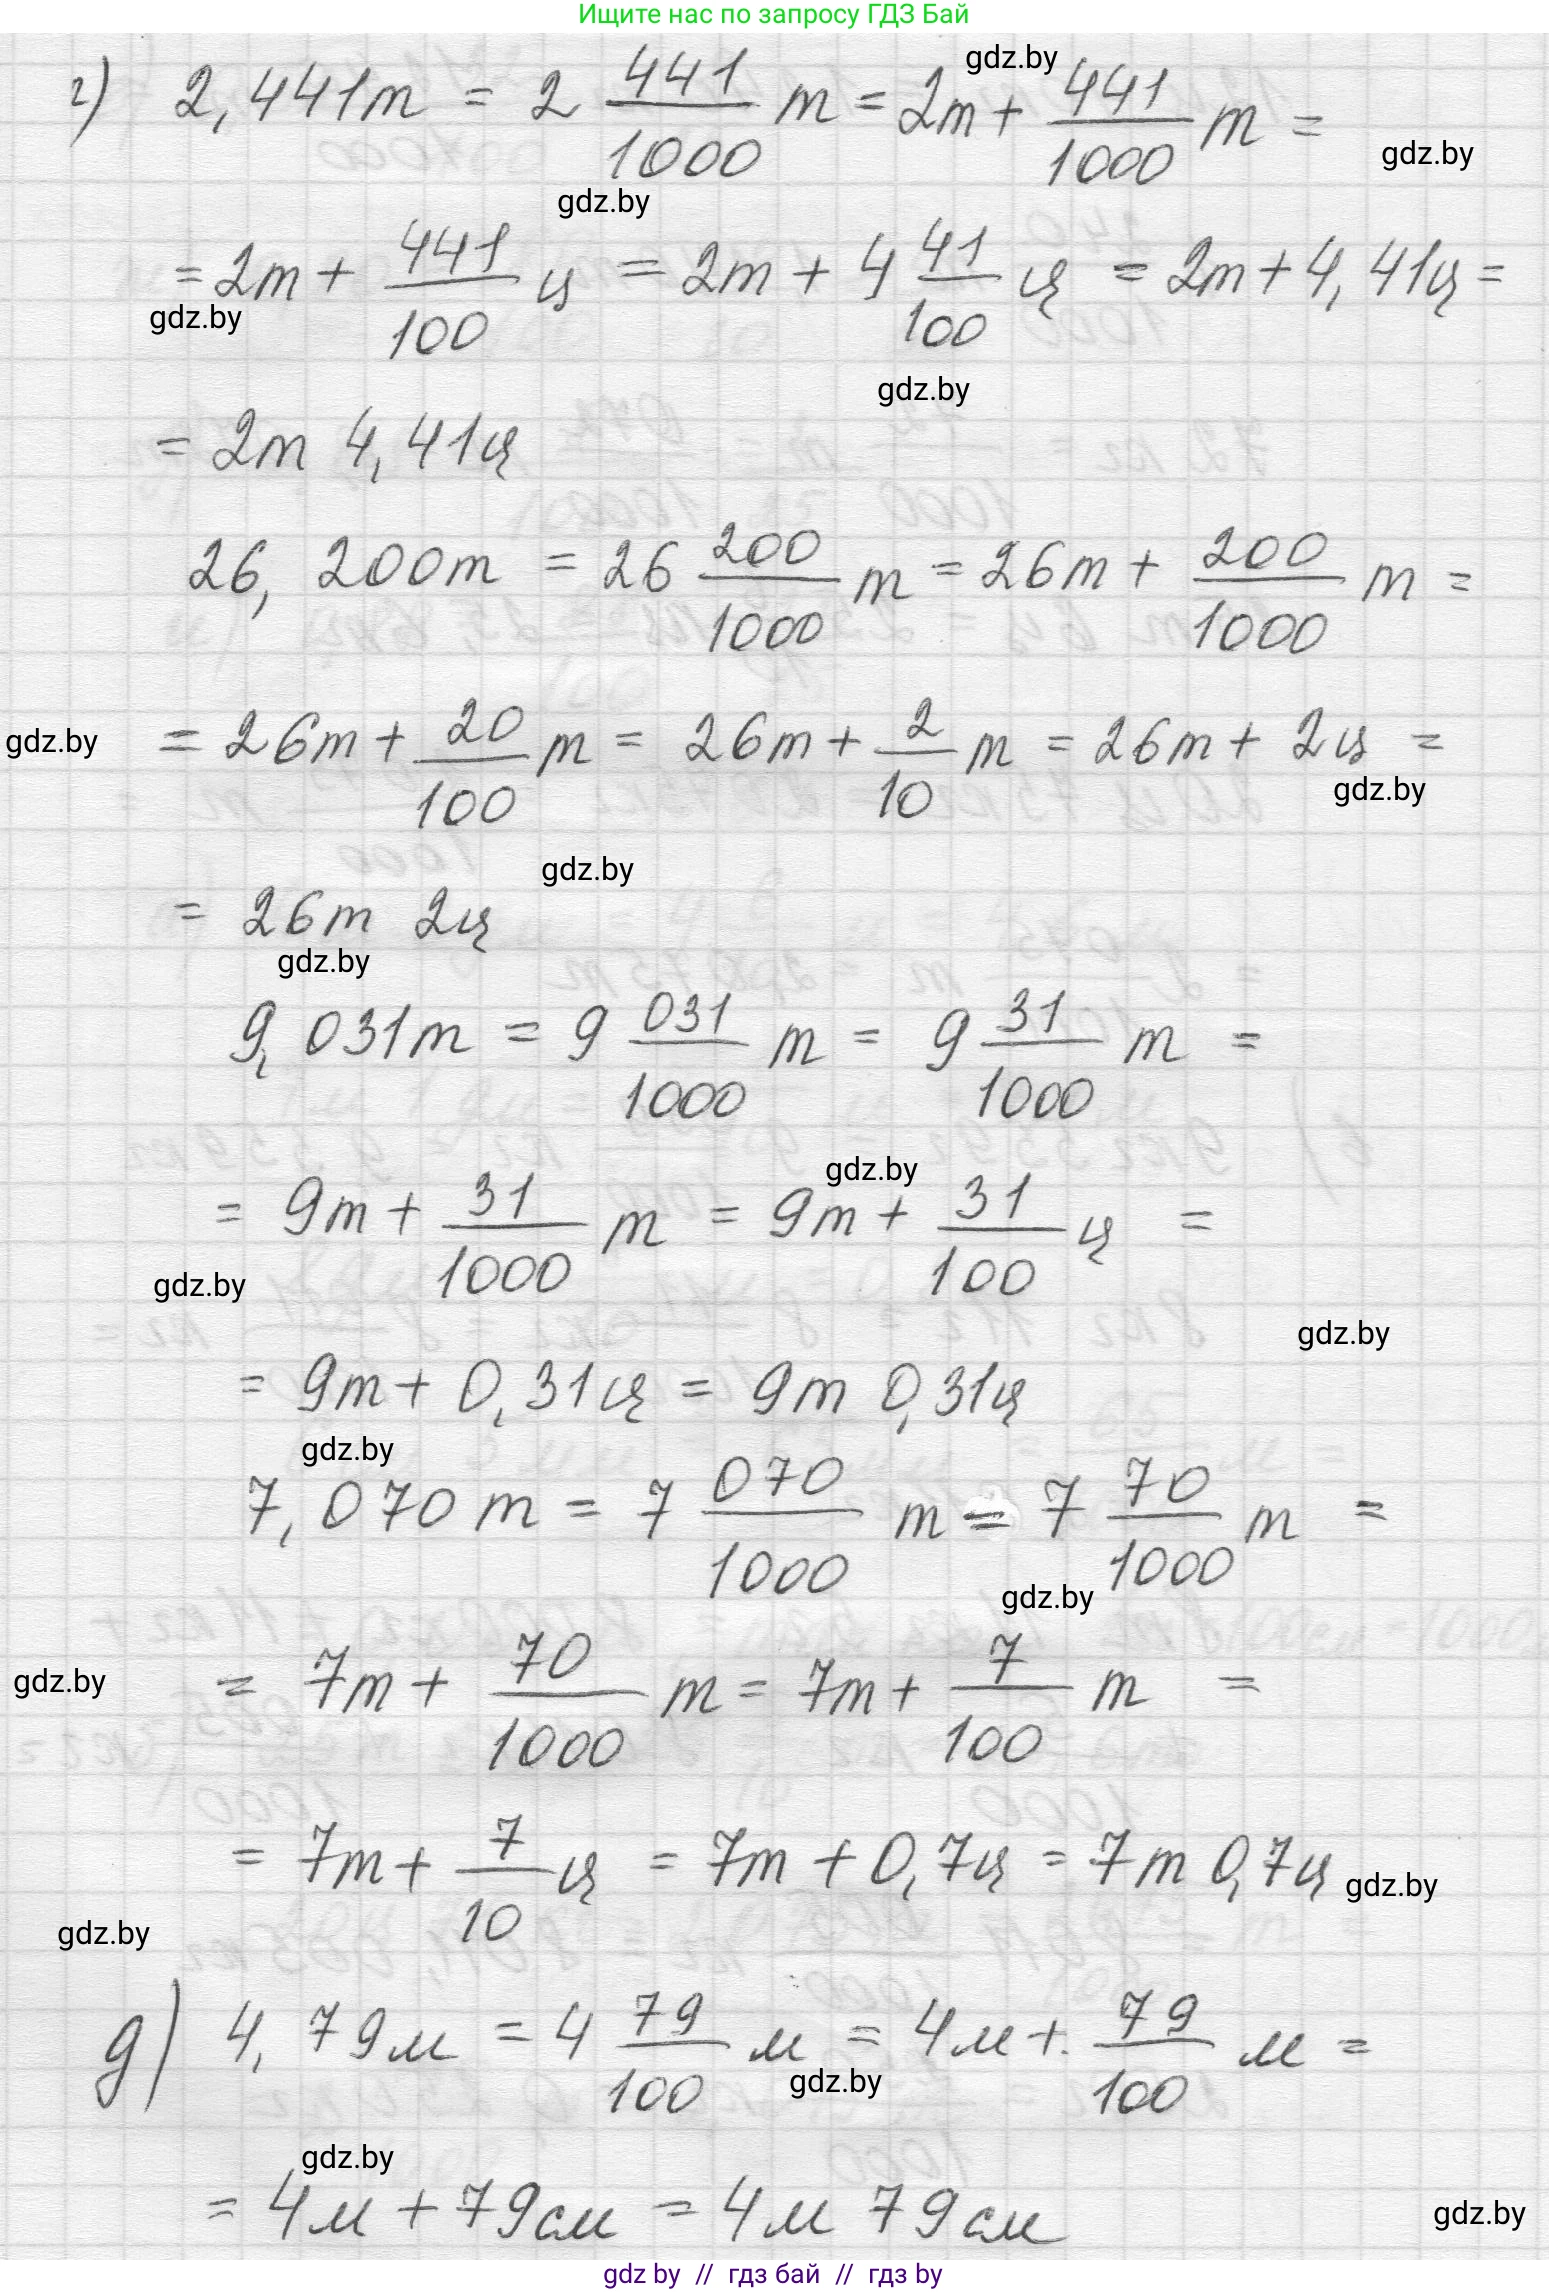 Ищите нас по запросу ГДЗ Бай
г) 2,441т = 2 441/1000 т = 2т + 441/1000 т =
gdz.by
gdz.by
gdz.by
= 2т + 441/100 ц = 2т + 4 41/100 ц = 2т + 4,41ц =
gdz.by
gdz.by
= 2т 4,41ц
26,200т = 26 200/1000 т = 26т + 200/1000 т =
= 26т + 20/100 т = 26т + 2/10 т = 26т + 2ц =
gdz.by
gdz.by
gdz.by
= 26т 2ц
gdz.by
9,031т = 9 031/1000 т = 9 31/1000 т =
gdz.by
= 9т + 31/1000 т = 9т + 31/100 ц =
gdz.by
gdz.by
= 9т + 0,31ц = 9т 0,31ц
gdz.by
7,070 т = 7 070/1000 т = 7 70/1000 т =
gdz.by
gdz.by
= 7т + 70/1000 т = 7т + 7/100 т =
= 7т + 7/10 ц = 7т + 0,7ц = 7т 0,7ц
gdz.by
gdz.by
д) 4,79м = 4 79/100 м = 4м + 79/100 м =
gdz.by
gdz.by
= 4м + 79см = 4м 79см
gdz.by
gdz by // гдз бай // гдз by